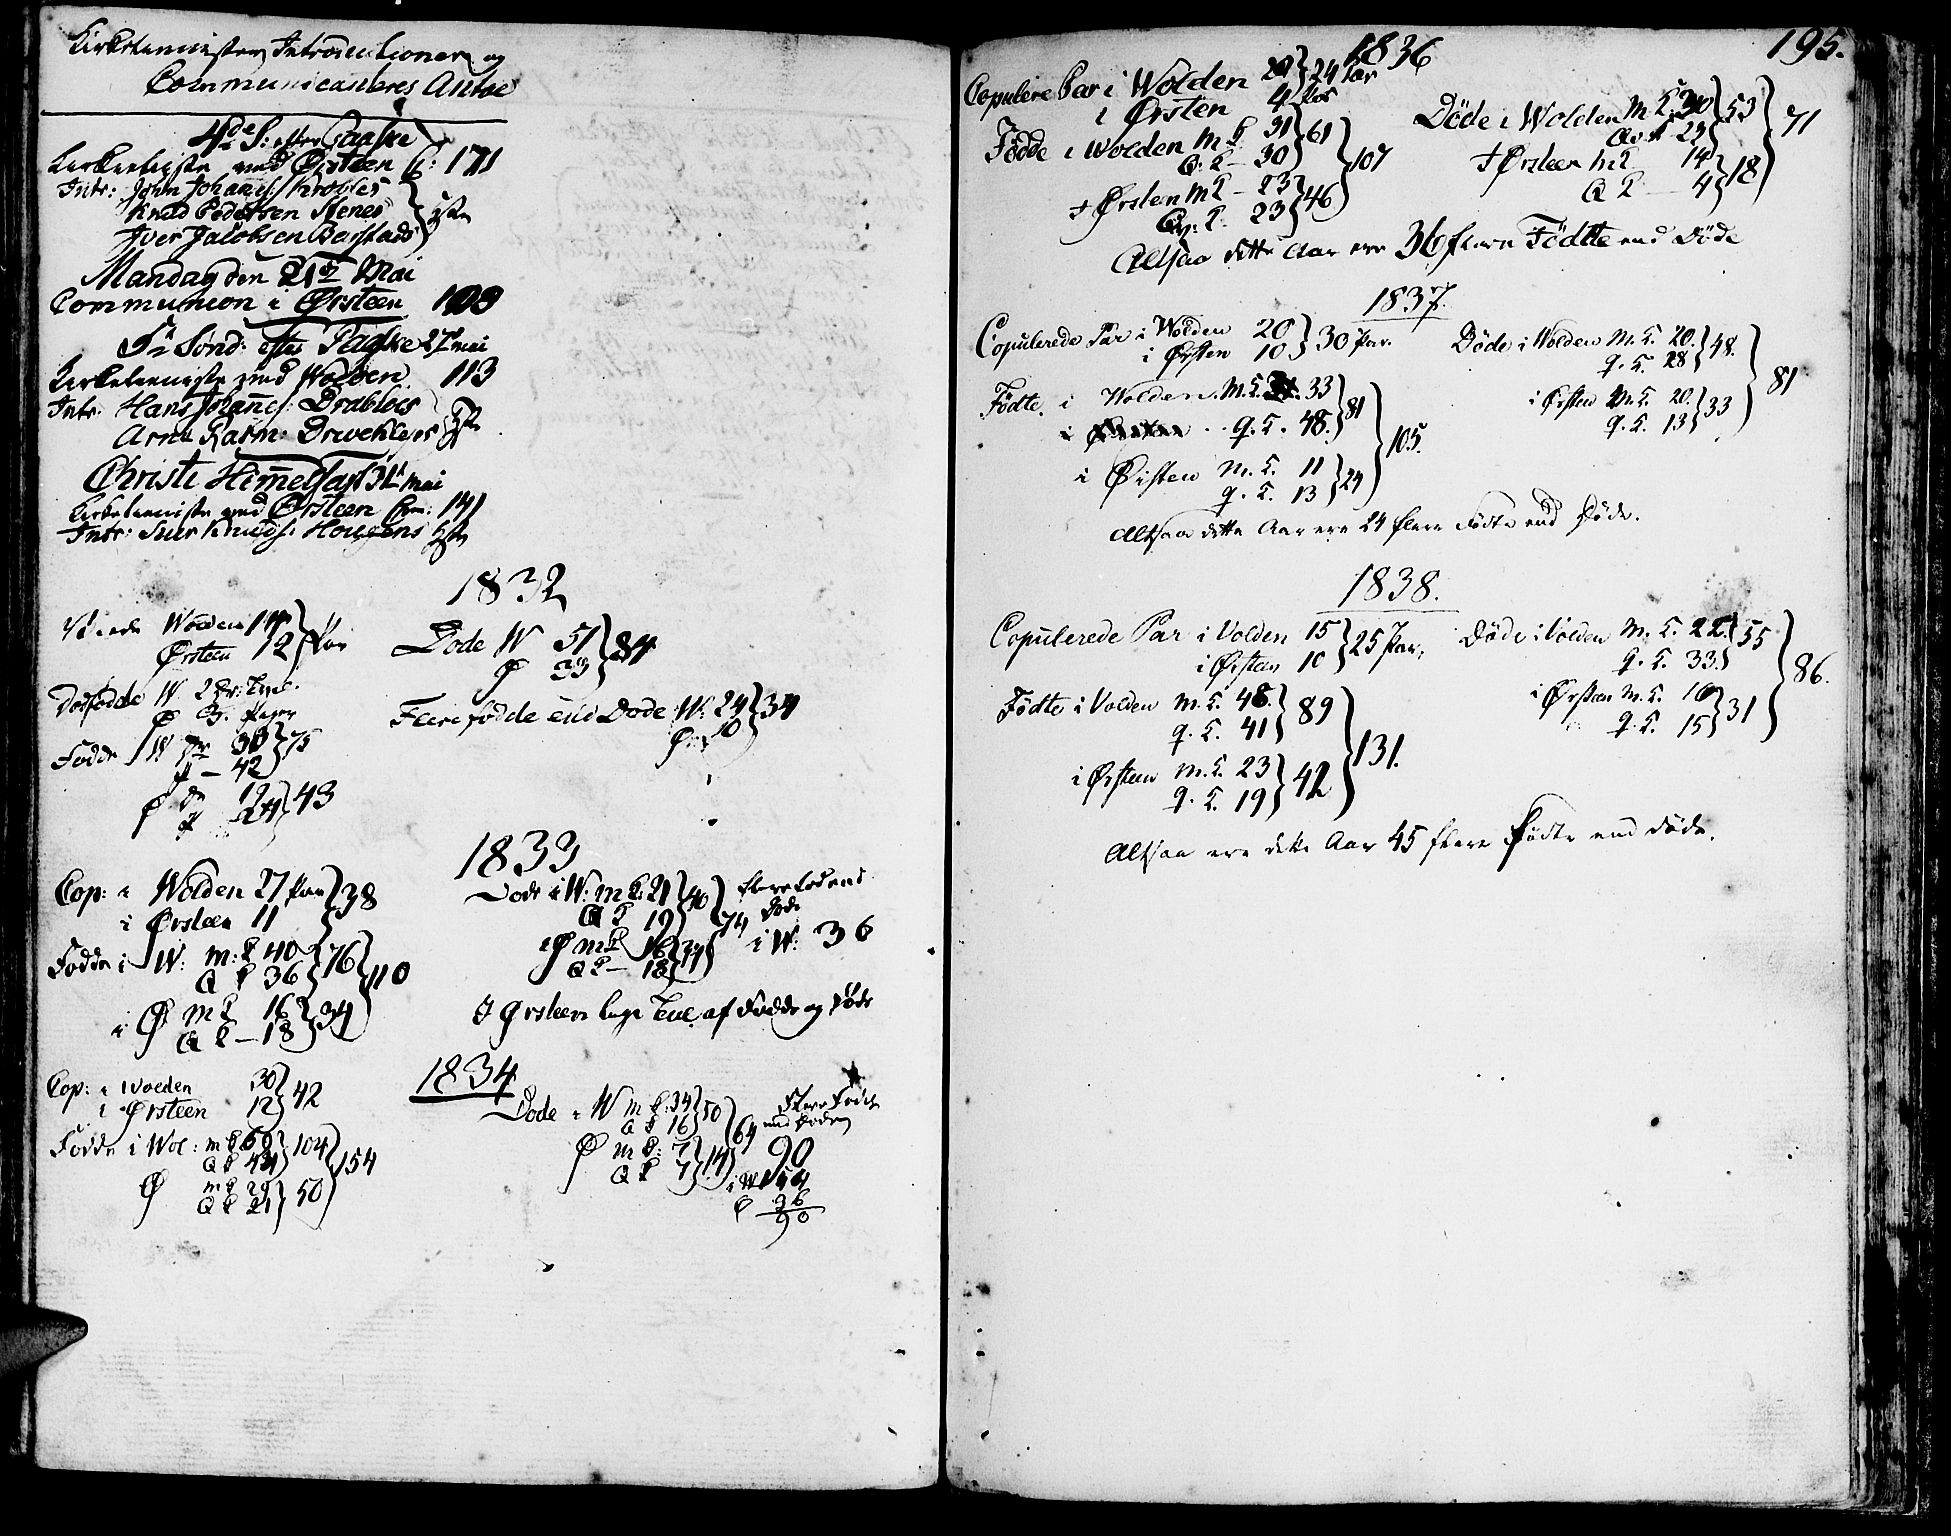 Kirketienister, Introductioner og
Communicanteres Antal
4de S: efter Paaske
Kirketieniste med Ørsteen C: 171
Intr: John Johannes: Krobles
Knud Pedersen Stenes
Iver Jacobsen Barstads
Mandag den 21de Mai
Communion i Ørsteen 103
5te Sønd: efter Paaske 27de mai
Kirketieniste med Wolden 113
Intr. Hans Johannes: Drabløes
Arne Rasm:
Christi Himmelfart 31te mai
Kirketieniste med Ørsteen Com: 141
Intr: Siur Knuds: Hougens
1832
Viede Wolden 14
Ørsteen 12 Par
Døde W 51 84
Ø 33
Dødfødde W. 2
Ø 3.
Flere fødde end Døde W: 24 34
Ø: 10
Fødde W 33 75
42
Ø 19 43
24
1833
Cop: i Wolden 27 Par 38
i Ørsteen 11
Døde i W: m k: 21 40 74
Q k 19
i Ø m k 16 34
Q k – 18
flere fødd end
Døde
i W: 36
Fødde i W: m: k 40 76 110
Q k 36
i Ø m k 16 34
Q k – 18
I Ørsteen lige Tal af Fødde og Døde
1834
Cop: i Wolden 30 42
i Ørsteen 12
Døde i W m k: 34 50 64
Q k 16
Ø m k: 7 14
Q k 7
Flere Fødde
end Døde
90
i W 54
Ø 36
90
Fødde i Wol: m k 60 104 154
Q k 44
Ø m k 29 50
Q k 21
195.
1836
Copulere Par i Wolden 20 24 Par
i Ørsten 4 Par
Døde i Wolden M K. 30 53 71
Qv k 23
I Ørsteen M K 14 18
Q K 4
Födde i Wolden M K 31 61 107
Q: K – 30
I Ørsten M K – 23 46
Qv: K. 23
Altsaa dette Aar ere 36 flere Födtte end Döde
1837.
Copulerede Par i Wolden 20 30 Par.
i Ørsten 10
Döde i Wolden M. K. 20. 48. 81
q. K. 28
i Ørsten M. K. 20. 33
q. K. 13
Födte. i Wolden. M. K. 33 81 105.
q. K. 48.
i Ørsten M. K. 11 24
q. K. 13
Altsaa dette Aar ere 24 flere Födte end Döde.
1838.
Copulerede Par i Volden 15 25 Par,
i Örsten 10
Döde i Volden M. K. 22. 55 86.
q. K. 33.
i Ørsten M. K. 16 31
q. K. 15
Födte i Volden M. K. 48. 89 131.
q. K. 41
i Ørsteen M. K. 23 42
q. K. 19
Altsaa ere dette Aar 45 flere Födte end döde.